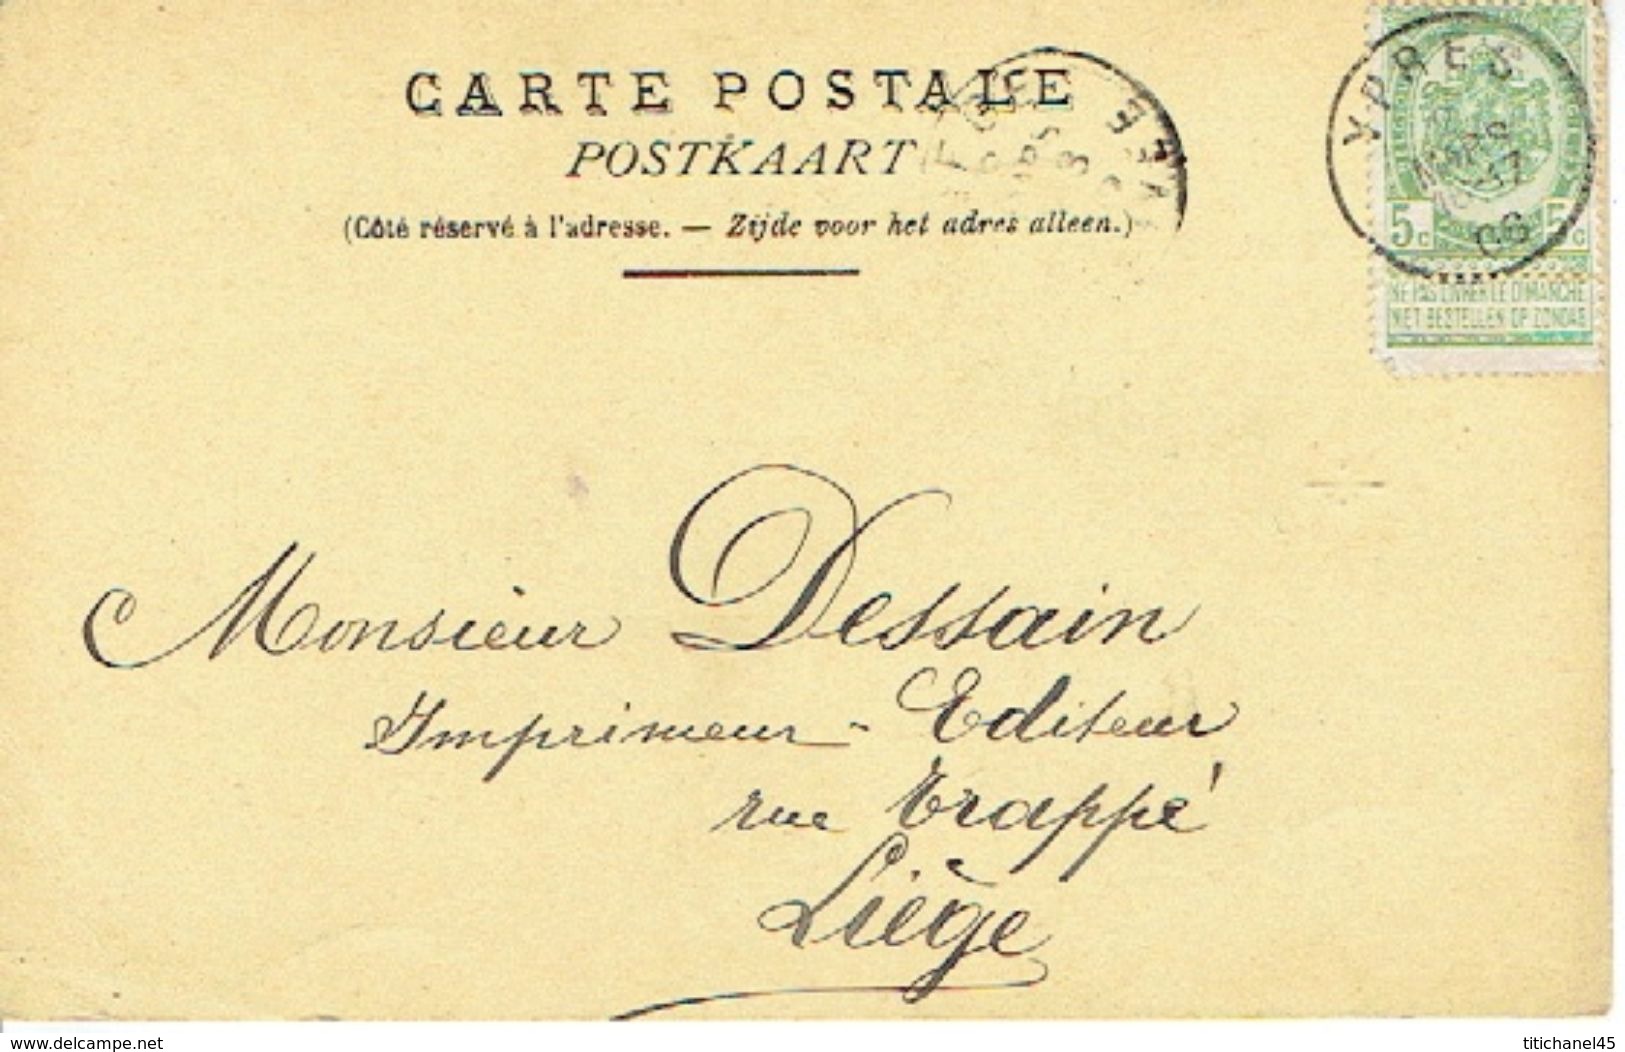 CARTE POSTALE
POSTKAART
(Côté réservé à l'adresse. — Zijde voor het adres alleen.)
YPRES
MARS
06
5c 5c
NE PAS LIVRER LE DIMANCHE
NIET BESTELLEN OP ZONDAG
Monsieur Dessain
Imprimeur - Editeur
rue Trappé
Liège
delcampe.net
titichanel45